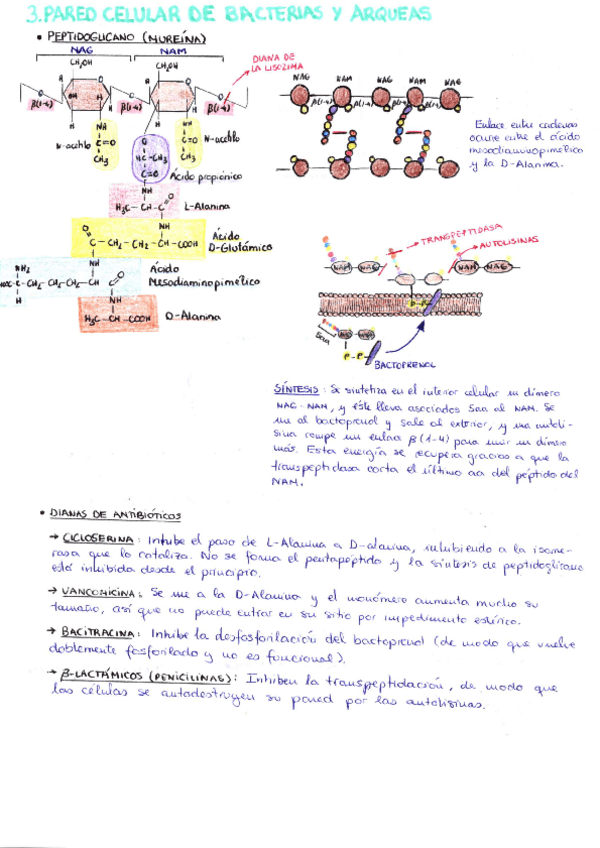 3.PARED CELULAR DE BACTERIAS Y ARQUEAS
• PEPTIDOGLICANO (MUREÍNA)
NAG NAM
CH₂OH CH₂OH
DIANA DE
LA LISOZIMA
β(1-4) β(1-4) β(1-4)
N-acetilo
N-acetilo
Ácido propiónico
L-Alanina
Ácido
D-Glutámico
Ácido
Mesodiaminopimélico
D-Alanina
NAG NAM NAG NAM NAG
Enlace entre cadenas
ocurre entre el ácido
mesodiaminopimélico
y la D-Alanina.
TRANSPEPTIDASA
AUTOLISINAS
NAM NAG NAM NAG
P-P
5aa NAG NAM
P-P
BACTOPRENOL
SÍNTESIS: Se sintetiza en el interior celular un dímero
NAG-NAM, y éste lleva asociados 5aa al NAM. Se
une al bactoprenol y sale al exterior, y una autoli-
sina rompe un enlace β(1-4) para unir un dímero
más. Esta energía se recupera gracias a que la
transpeptidasa corta el último aa del péptido del
NAM.
• DIANAS DE ANTIBIÓTICOS
→ CICLOSERINA: Inhibe el paso de L-Alanina a D-alanina, inhibiendo a la isome-
rasa que lo cataliza. No se forma el pentapéptido y la síntesis de peptidoglicano
está inhibida desde el principio.
→ VANCOMICINA: Se une a la D-Alanina y el monómero aumenta mucho su
tamaño, así que no puede entrar en su sitio por impedimento estérico.
→ BACITRACINA: Inhibe la desfosforilación del bactoprenol (de modo que vuelve
doblemente fosforilado y no es funcional).
→ β-LACTÁMICOS (PENICILINAS): Inhiben la transpeptidación, de modo que
las células se autodestruyen su pared por las autolisinas.